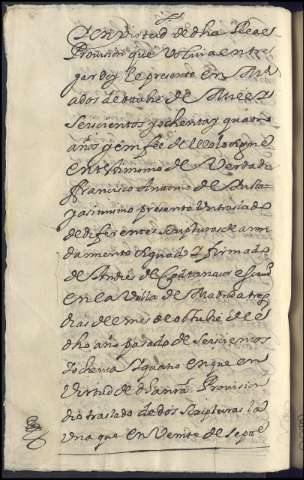 en Virtud de dha Real
Provision que Volvi a entre
gar doy le presente en Md
a dos de octubre de mill
seiscientos y ochenta y quatro
años y en fee de ello lo signe
en testimonio de Verdad
francisco Antonio de
asimismo presento Un traslado
de diferentes escripturas de arren
damiento signado y firmado
de Andres de
en la Villa de Madrid a tres
dias del mes de octubre de el
dho año pasado de seiscientos
y ochenta y quatro en que en
Virtud de dha Provision
dio traslado de dos escripturas la
Una que en Veinte de septe